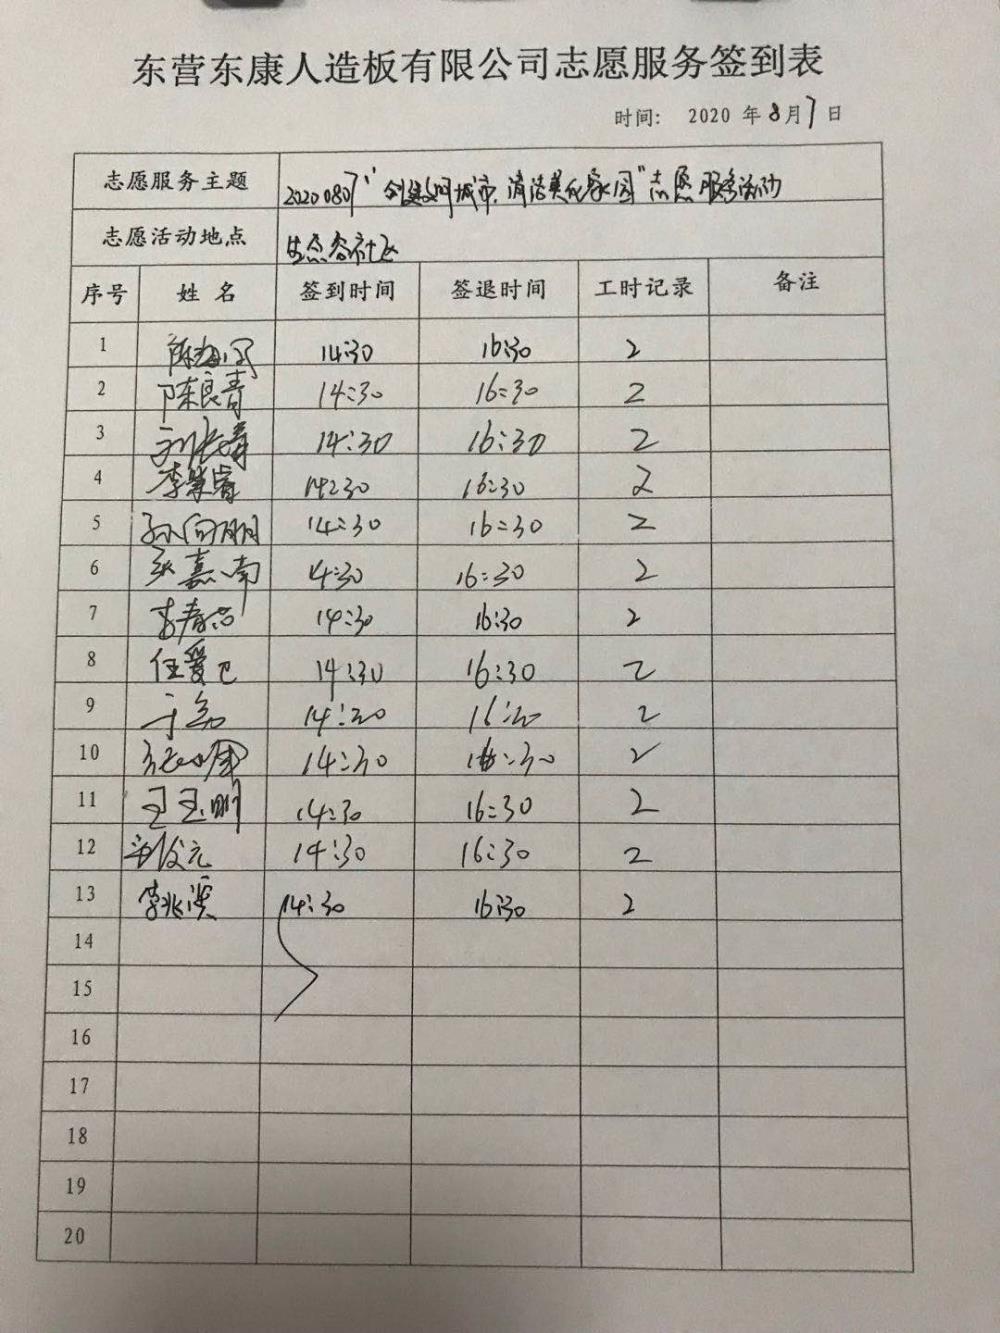 东营东康人造板有限公司志愿服务签到表
时间: 2020 年 8月7日
志愿服务主题 20200807“创建文明城市,清洁美化家园”志愿服务活动
志愿活动地点 生态谷社区
序号 姓 名 签到时间 签退时间 工时记录 备注
1 14:30 16:30 2
2 陈良青 14:30 16:30 2
3 14:30 16:30 2
4 14:30 16:30 2
5 孙向丽 14:30 16:30 2
6 张嘉南 14:30 16:30 2
7 14:30 16:30 2
8 任爱卫 14:30 16:30 2
9 14:20 16:20 2
10 14:30 16:30 2
11 王玉明 14:30 16:30 2
12 刘俊元 14:30 16:30 2
13 14:30 16:30 2
14
15
16
17
18
19
20